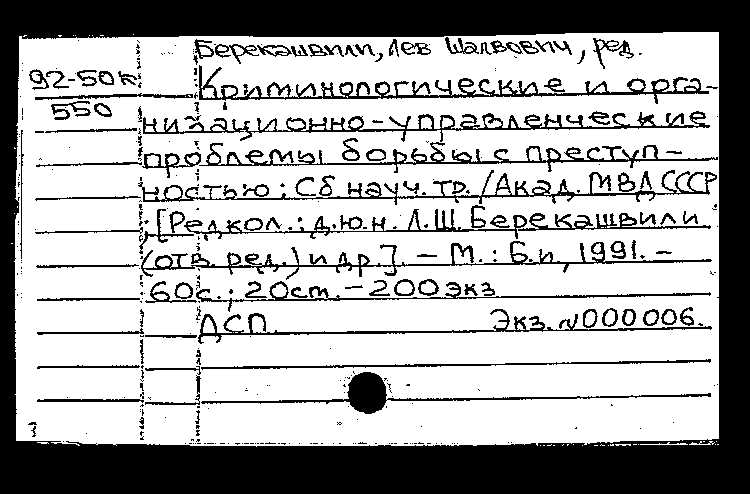 Берекашвили, Лев Шалвович, ред.
92-50к
550
Криминологические и орга-
низационно-управленческие
проблемы борьбы с преступ-
ностью: Сб. науч. тр. / Акад. МВД СССР
; [Редкол.: д.ю.н. Л.Ш. Берекашвили
(отв. ред.) и др.]. - М.: Б.и, 1991. -
60с.; 20см. - 200 экз
ДСП. Экз. № 000006.
3